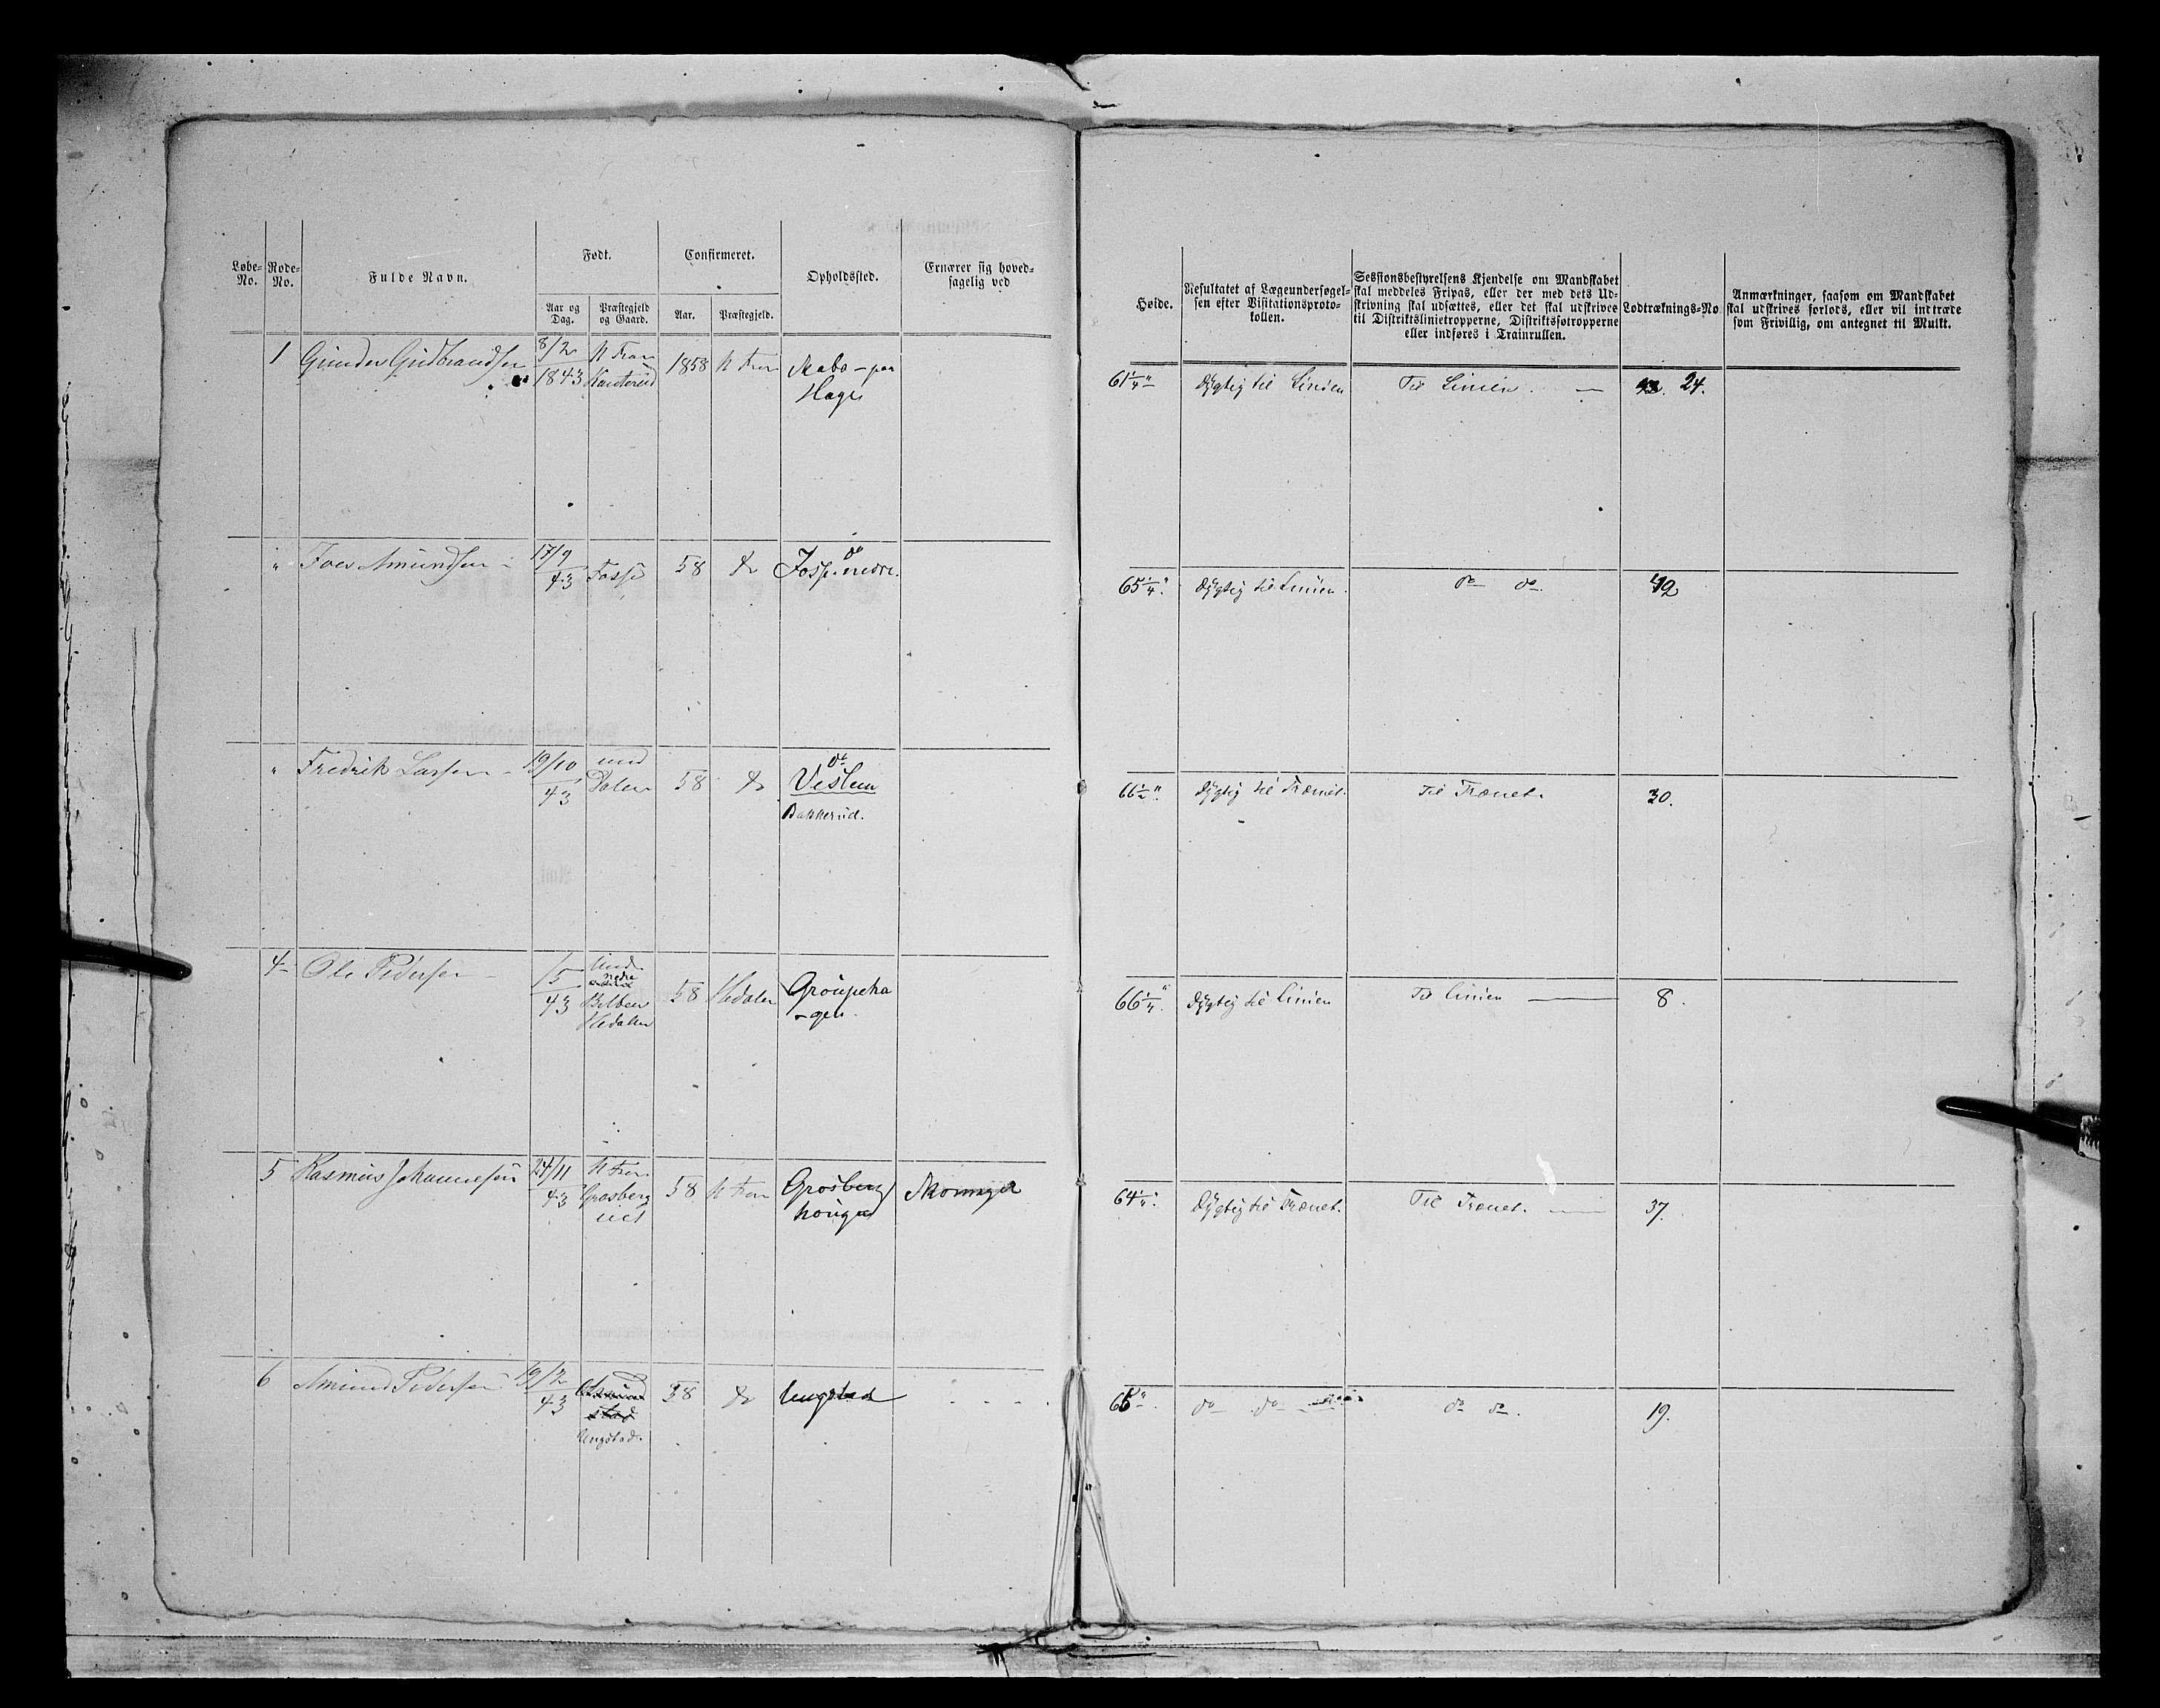 Løbe-No. Rode-No. Fulde Navn. Født. Confirmeret. Opholdssted. Ernærer sig hovedsagelig ved
Aar og Dag. Præstegjeld og Gaard. Aar. Præstegjeld.
Høide. Resultatet af Lægeundersøgelsen efter Visitationsprotokollen. Sessionsbestyrelsens Kjendelse om Mandskabet skal meddeles Fripas, eller der med dets Udskrivning skal udsættes, eller det skal udskrives til Distriktslinietropperne, Distriktsfotropperne eller indføres i Trainrullen. Lodtræknings-No Anmærkninger, saasom om Mandskabet skal udskrives forlods, eller vil indtræde som Frivillig, om antegnet til Mulkt.
1 Gunder Gudbrandsen 8/2 1843 N 1858 N
Hage
61 1/4" Dygtig til Linien Til Linien. — 24.
" Amundsen 17/9 43 Fosse 58 do do
65 1/4" Dygtig til Linien. do do 42
" Fredrik Larsen 19/10 43 Dalen 58 do do
Veslem
Bakkerud.
66 1/2" Dygtig til Trænet. Til Trænet. 30.
4 Ole Pedersen 15 43 nedre Hedalen 58 Hedalen
66 1/4" Dygtig til Linien Til Linien — 8.
5 Rasmus Johannesen 24/11 43 N Grosberg 58 N Grosberg
64 1/4" Dygtig til Trænet. Til Trænet. — 37.
6 Amund Pedersen 19/12 43 58 do Ungstad
Ungstad.
66" do do do do. 19.